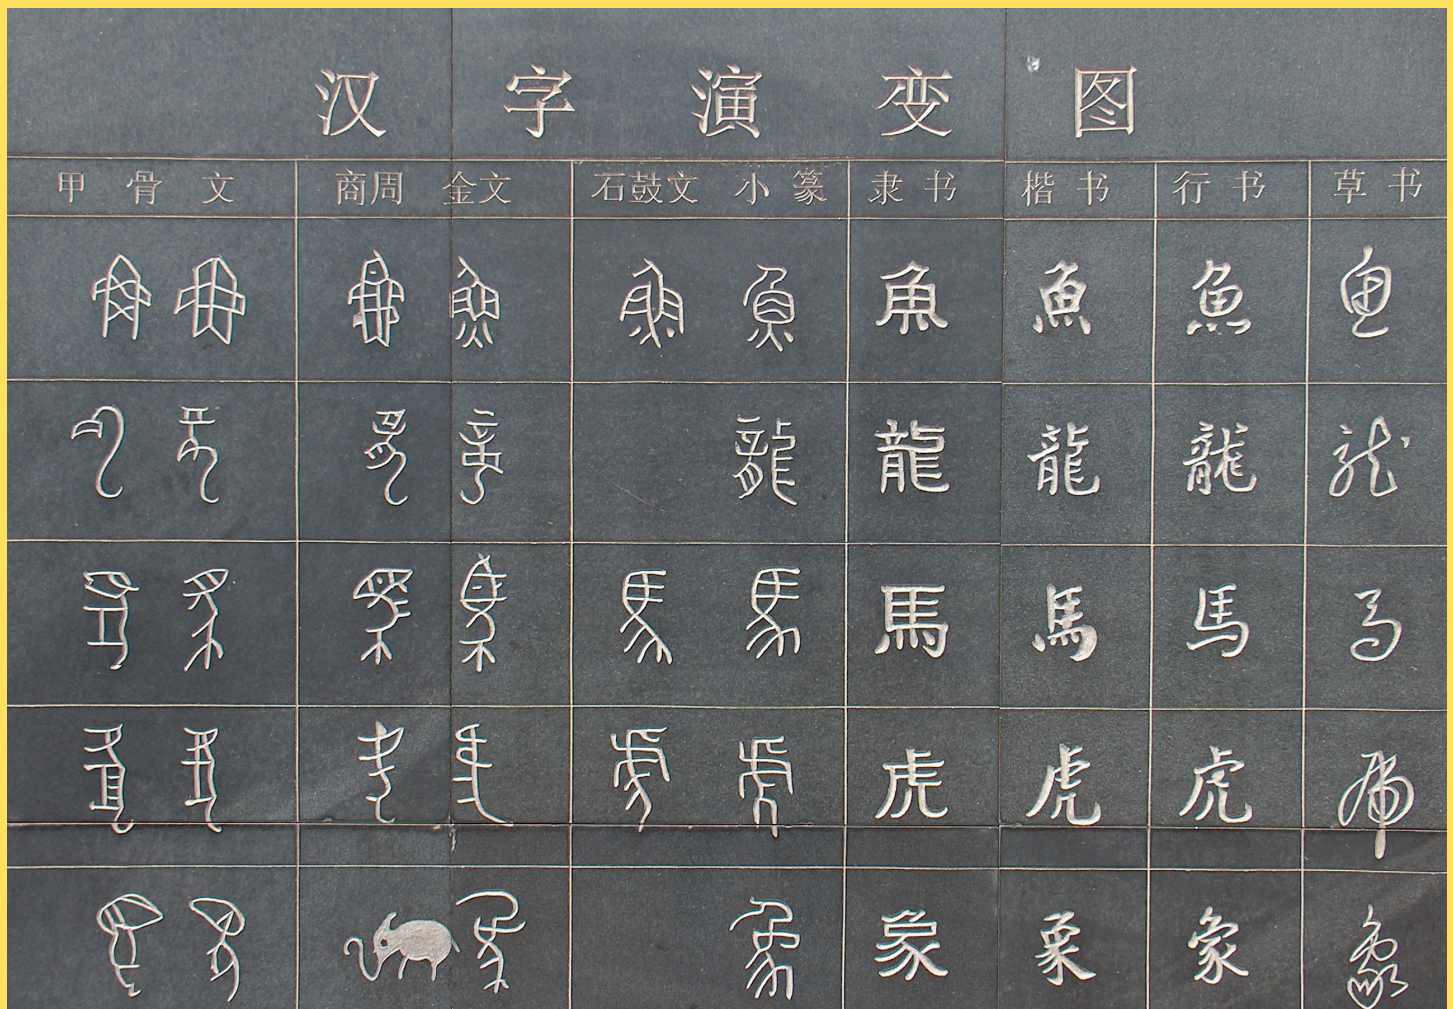 汉字演变图
甲骨文 商周金文 石鼓文 小篆 隶书 楷书 行书 草书
魚 魚 魚 魚 魚 魚 魚 魚 魚 魚
龍 龍 龍 龍 龍 龍 龍 龍 龍
馬 馬 馬 馬 馬 馬 馬 馬 馬 馬
虎 虎 虎 虎 虎 虎 虎 虎 虎 虎
象 象 象 象 象 象 象 象 象